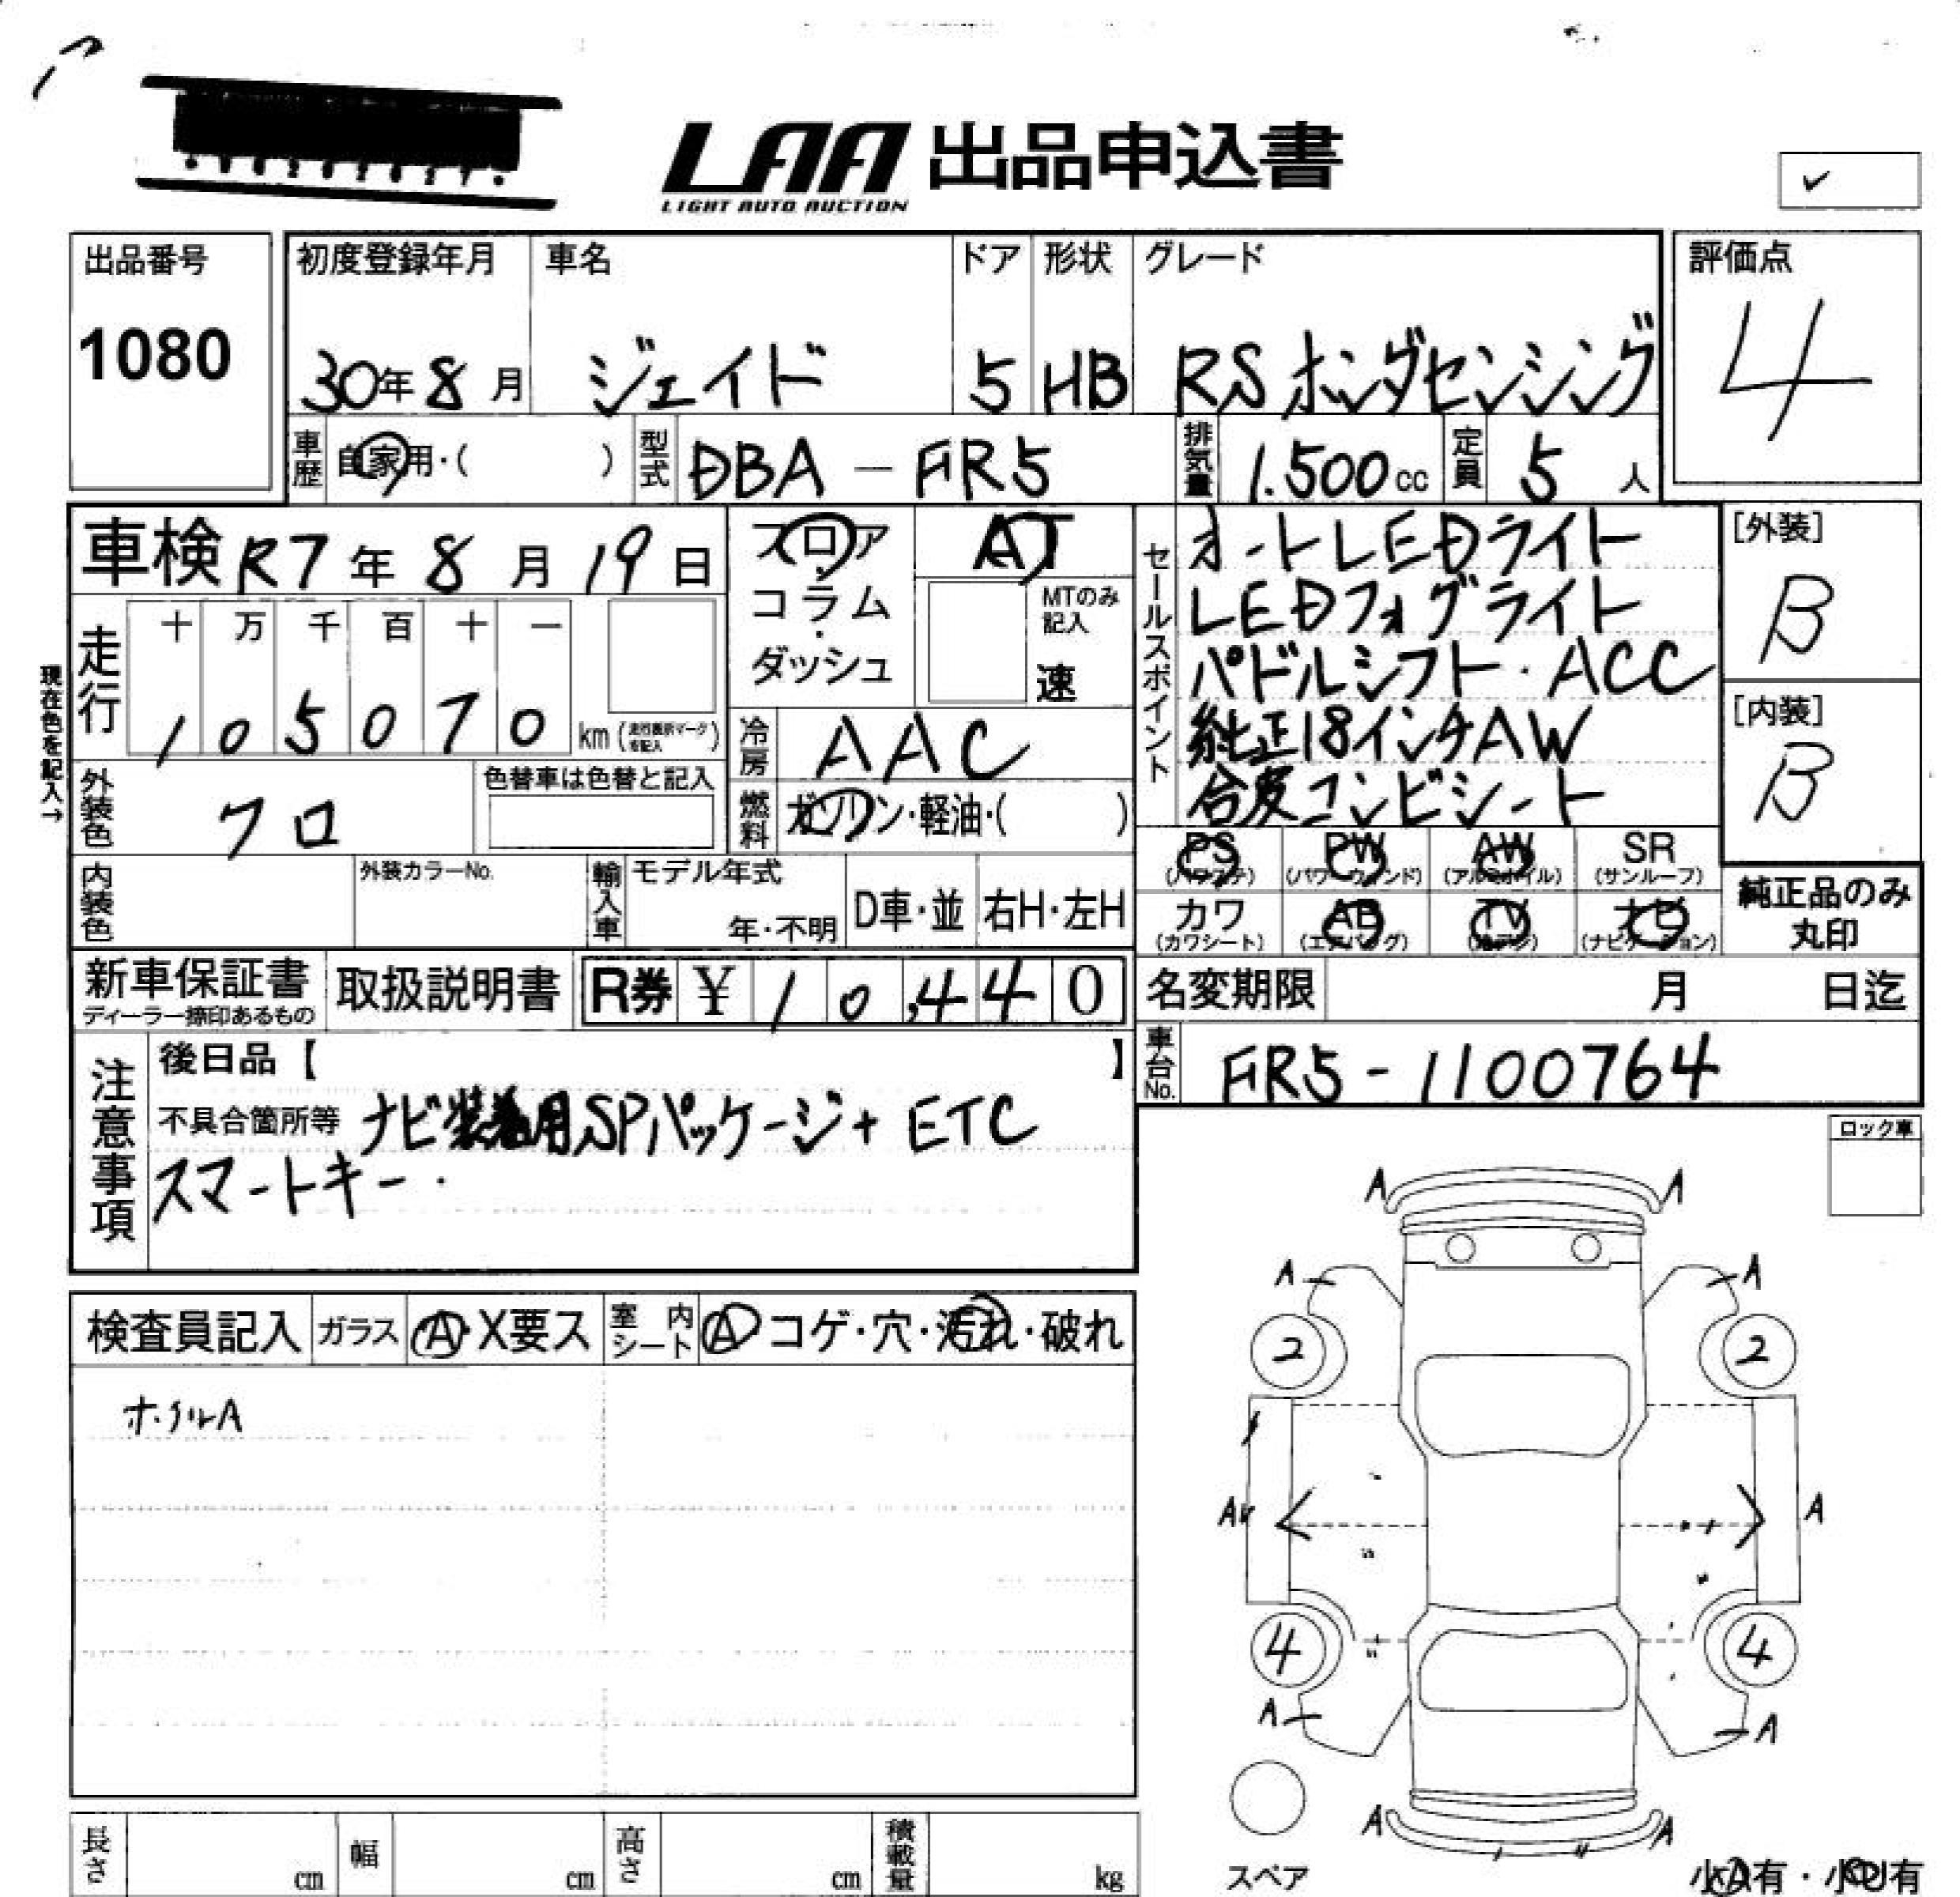 LAA 出品申込書
LIGHT AUTO AUCTION
出品番号
1080
初度登録年月
30年8月
車名
ジェイド
ドア
5
形状
HB
グレード
RS ホンダセンシング
評価点
4
車歴 自家用・( )
型式 DBA-FR5
排気量 1.500cc
定員 5人
車検 R7年8月19日
フロア・コラム・ダッシュ
AT
MTのみ記入
速
セールスポイント
オートLEDライト
LEDフォグライト
パドルシフト・ACC
純正18インチAW
合皮コンビシート
[外装]
B
[内装]
B
現在色を記入→
走行
十 万 千 百 十 一
1 0 5 0 7 0 km
冷房 AAC
外装色 クロ
色替車は色替と記入
燃料 ガソリン・軽油・( )
内装色
外装カラーNo.
輸入車
モデル年式
年・不明
D車・並
右H・左H
PS (パワステ)
PW (パワーウィンド)
AW (アルミホイル)
SR (サンルーフ)
カワ (カワシート)
AB (エアバッグ)
TV
ナビ (ナビゲーション)
純正品のみ丸印
新車保証書
ディーラー捺印あるもの
取扱説明書
R券 ¥ 10,440
名変期限 月 日迄
車台No. FR5-1100764
注意事項
後日品【 】
不具合箇所等 ナビ装着用SPパッケージ+ ETC
スマートキー・
ロック車
検査員記入
ガラス A・X要ス
室内シート A コゲ・穴・汚れ・破れ
ホイルA
A A
A A
2 2
A A
4 4
A A
A A
スペア
長さ cm
幅 cm
高さ cm
積載量 kg
小A有・小U有